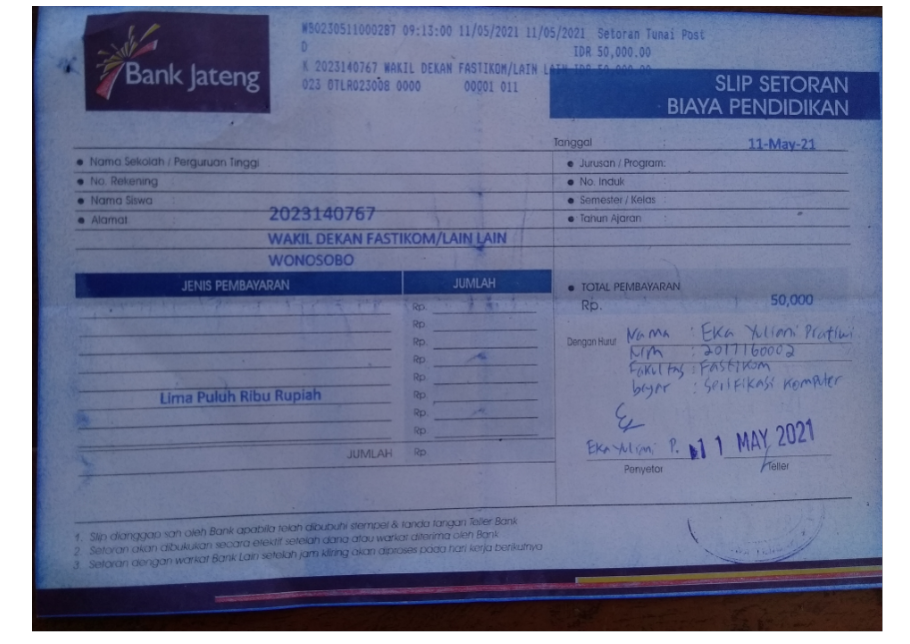 Bank Jateng
WS0230511000287 09:13:00 11/05/2021 11/05/2021 Setoran Tunai Post
D IDR 50,000.00
K 2023140767 WAKIL DEKAN FASTIKOM/LAIN LAIN IDR 50,000.00
023 0TLR023008 0000 00001 011
SLIP SETORAN
BIAYA PENDIDIKAN
Tanggal 11-May-21
• Nama Sekolah / Perguruan Tinggi
• No. Rekening
• Nama Siswa :
• Alamat :
2023140767
WAKIL DEKAN FASTIKOM/LAIN LAIN
WONOSOBO
• Jurusan / Program:
• No. Induk :
• Semester / Kelas :
• Tahun Ajaran :
JENIS PEMBAYARAN JUMLAH
Rp.
Rp.
Rp.
Rp.
Rp.
Rp.
Rp.
Rp.
Lima Puluh Ribu Rupiah
JUMLAH Rp.
• TOTAL PEMBAYARAN
Rp. 50,000
Dengan Huruf
Nama : Eka Yuliani Pratiwi
Nim : 2017160002
Fakultas : Fastikom
bayar : Sertifikasi Komputer
Eka Yuliani P.
11 MAY 2021
Penyetor Teller
1. Slip dianggap sah oleh Bank apabila telah dibubuhi stempel & tanda tangan Teller Bank
2. Setoran akan dibukukan secara efektif setelah dana atau warkat diterima oleh Bank
3. Setoran dengan warkat Bank Lain setelah jam kliring akan diproses pada hari kerja berikutnya